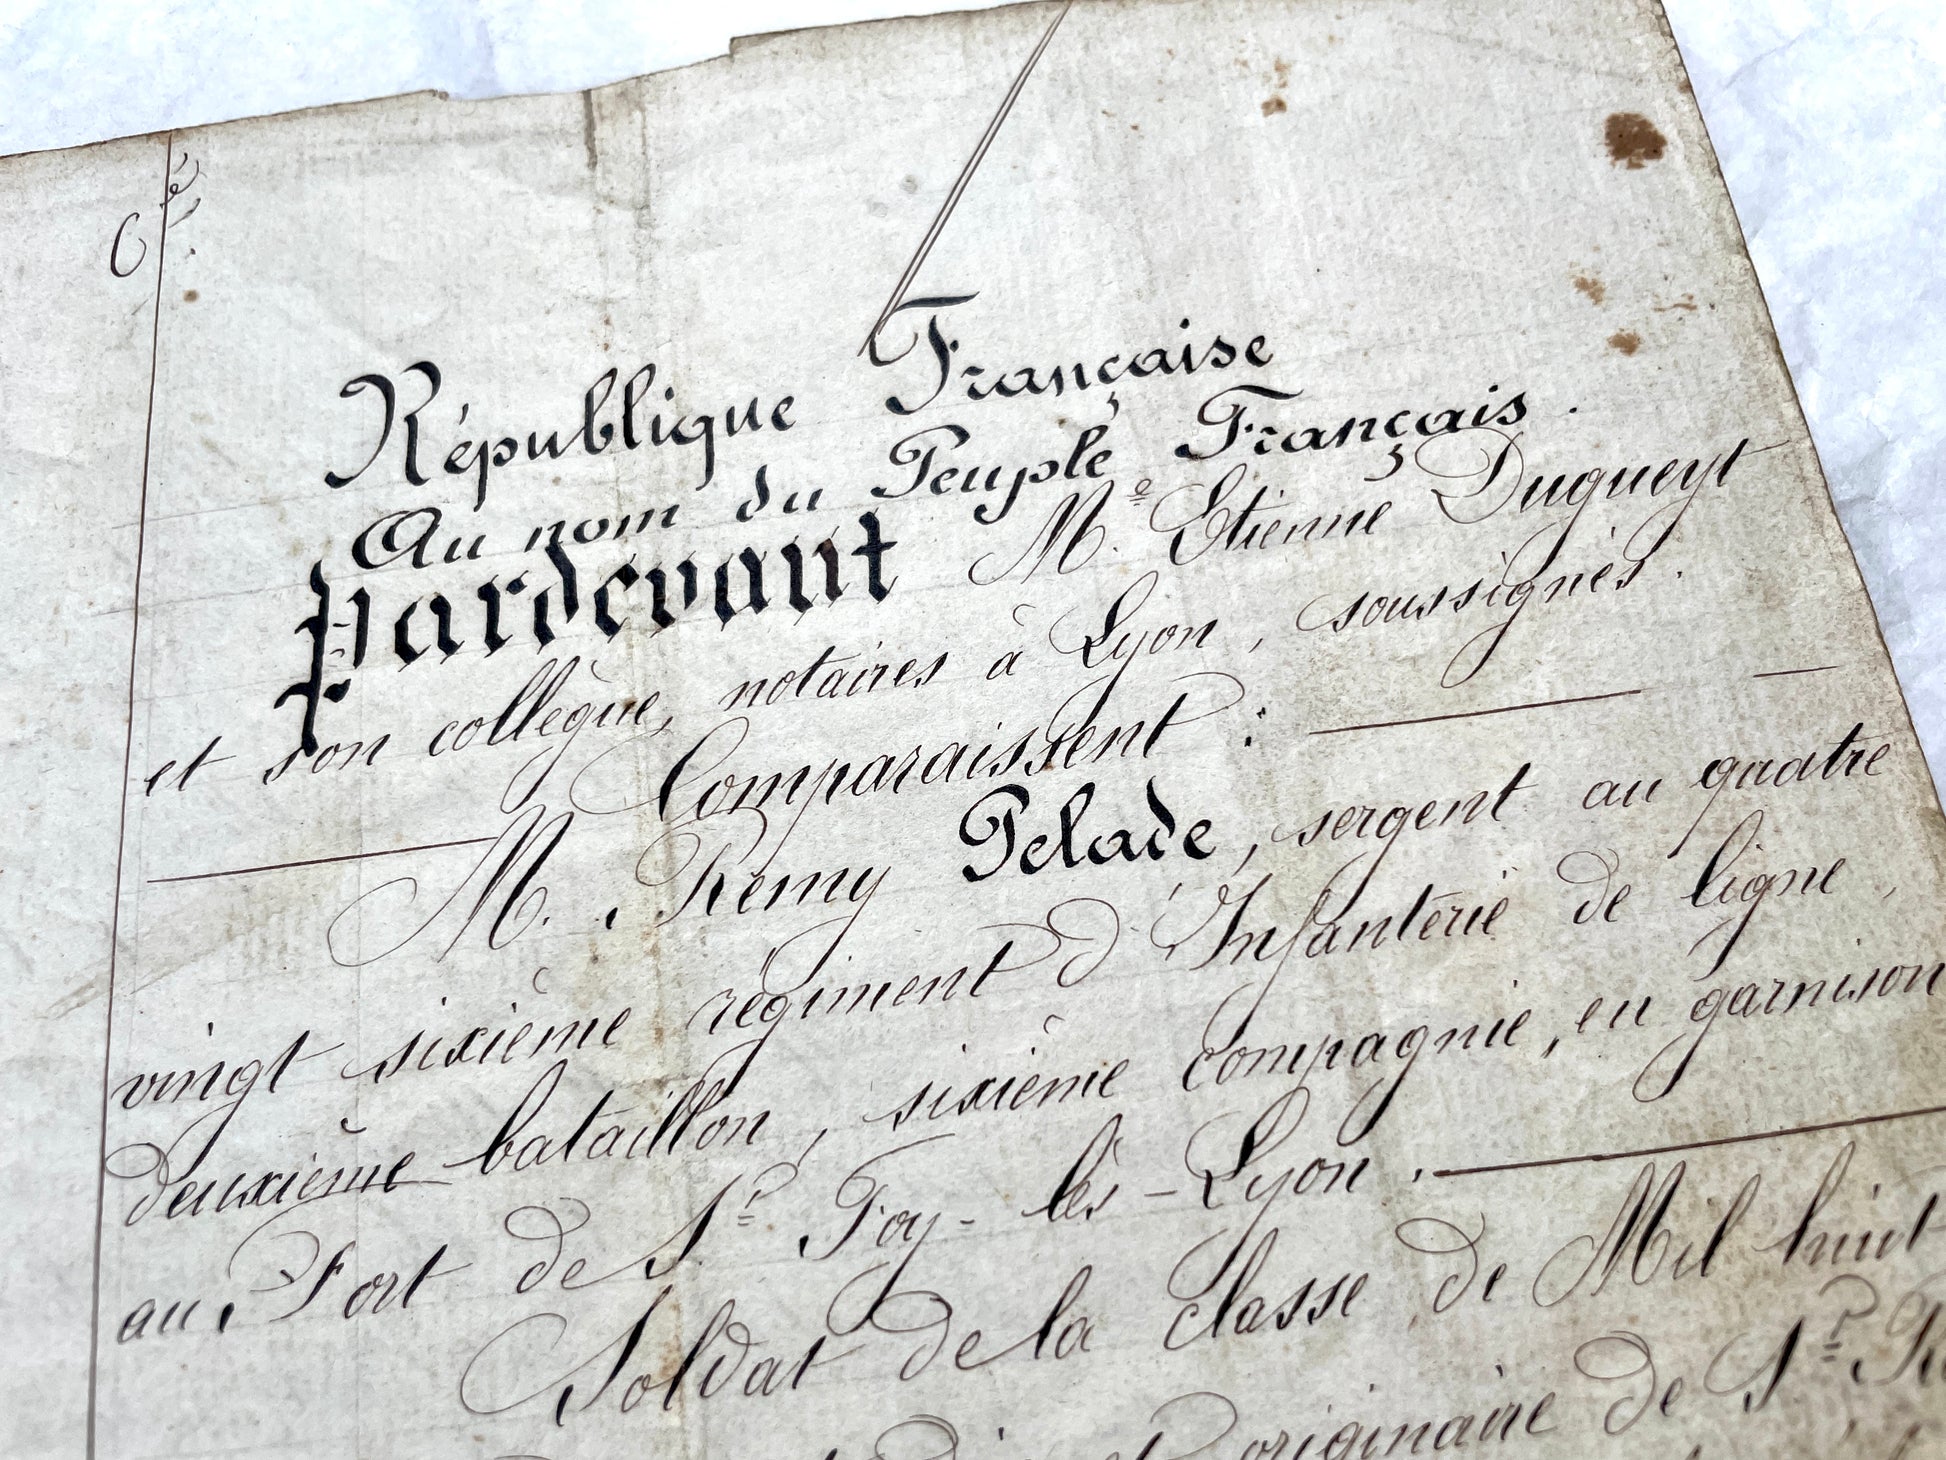 République Française
Au nom du Peuple Français.
Pardevant Me. Etienne Dugueyt
et son collègue, notaires à Lyon, soussignés.
Comparaissent :
M. Remy Pelade, sergent au quatre
vingt sixième régiment d'Infanterie de ligne,
deuxième bataillon, sixième compagnie, en garnison
au Fort de St. Foy-lès-Lyon.
Soldat de la classe de Mil huit
originaire de St.